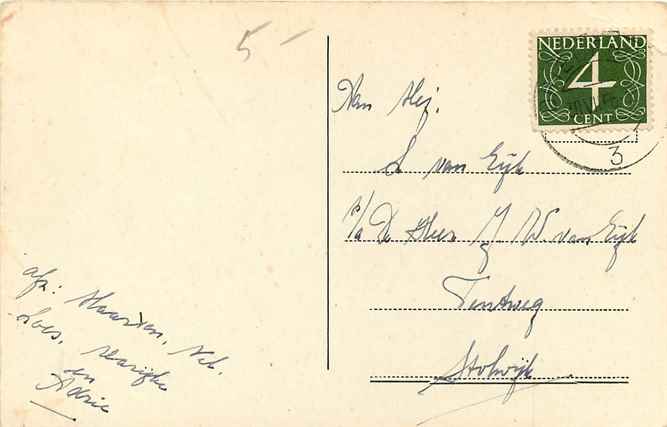 5-
NEDERLAND
4
CENT
3
Aan Mej.
L van Eijk
p/a De Heer J. W van Eijk
Tentweg
Stolwijk
afz: Maarten, Nel.
Loes, Marijke
en
Adrie